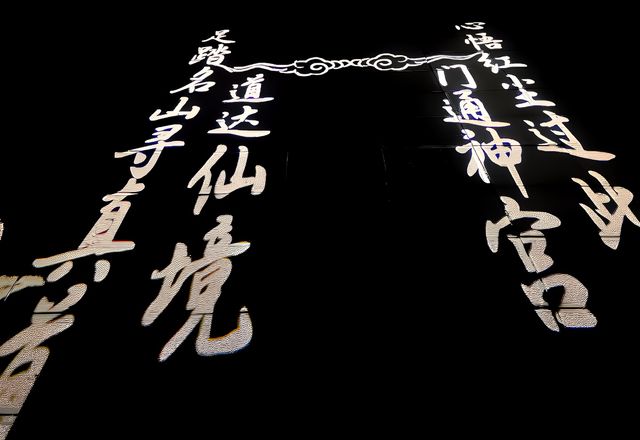 足踏名山寻真
道达仙境
心悟红尘过此
门通神宫